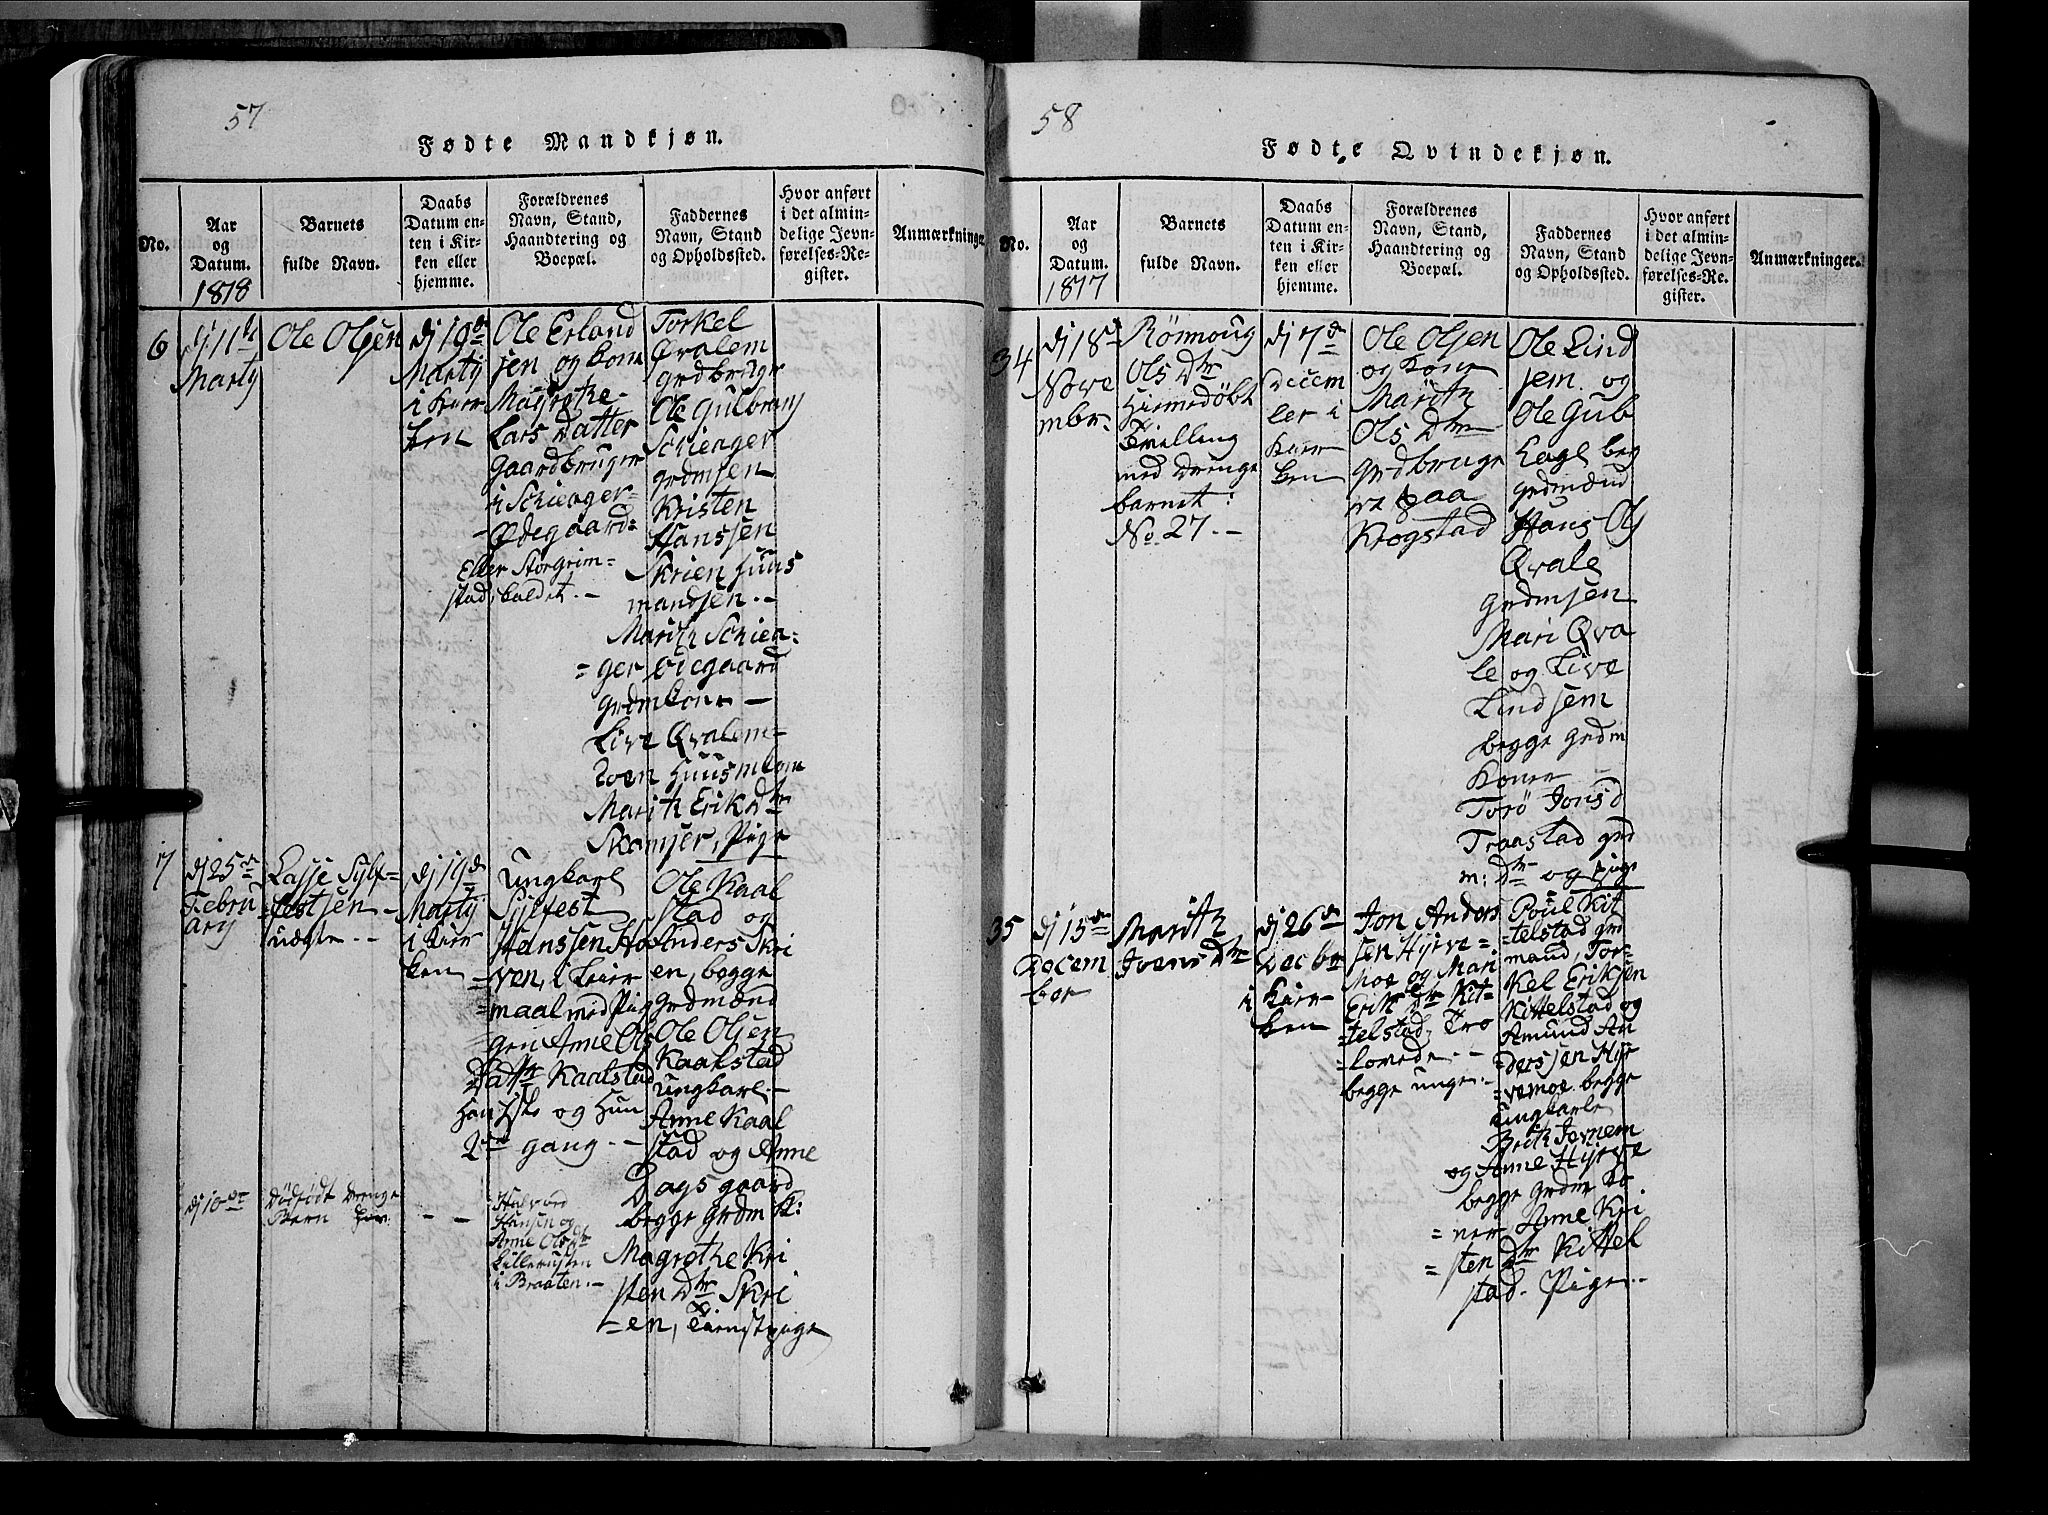 57
Fødte Mandkjøn.
No.
Aar
og
Datum.
1818
Barnets
fulde Navn.
Daabs
Datum en-
ten i Kir-
ken eller
hjemme.
Forældrenes
Navn, Stand,
Haandtering og
Boepæl.
Faddernes
Navn, Stand
og Opholdssted.
Hvor anført
i det almin-
delige Jevn-
førelses-Re-
gister.
Anmærkninger.
6
Marty
Ole Olsen
dj 19de
Marty
i Kier
ken
Ole Erland
sen og kone
Magrethe
Lars Datter
Gaardbruger
i Schienger-
Ødegaard
Eller Storgrim=
stad kaldet.--
Torkel
Qvalem
grdbruger
Ole Gulbrans
Schienger
grdmsen
Kristen
Hanssen
Skrien huus
mandsen.--
Marith Schien=
=ger ødegaard
grdmkone --
Live Qvalem-
Marith Erik Dtr
Skamser, Pige
7
dj 25de
Febru
ary
Lasse Sylf=
=festsen -
uægte --
dj 19de
Marty
i Kier
ken
Ungkarl
Sylfest
Hanssen Ho
=ven, i Leier
=maal med Pig
=gen Anne Ols
Datter Kaalstad
Han 1ste og Hun
2den gang.--
Ole Kaal
stad og
Anders Skri
en, begge
Grdmænd
Ole Olsen
Kaalstad
ungkarl-
Anne Kaal
stad og Anne
Dagsgaard
begge Grdm K:
Magrethe Kri
sten Dtr Skri
=en, Tienstpige
dj 10de
Dødfødt Drenge
Barn
- -
Halvord
Hansen og
Anne Ols Dtr
Lillerusten
i Braaten.-
58
Fødte Qvindekjøn.
No.
Aar
og
Datum.
1817
Barnets
fulde Navn.
Daabs
Datum en-
ten i Kir-
ken eller
hjemme.
Forældrenes
Navn, Stand,
Haandtering og
Boepæl.
Faddernes
Navn, Stand
og Opholdssted.
Hvor anført
i det almin-
delige Jevn-
førelses-Re-
gister.
Anmærkninger.
34
dj 18de
Nove
mbr-
Rönnoug
Ols Dtr
Hiemedöbt
Tvilling
med Drenge
barnet:
No. 27.--
dj 7de
Decem
ber i
Kier
ken
Ole Olsen
og Kone
Marith
Ols Dtr
grdbruge
re paa
Krogstad
Ole Lind
sem og
Ole Gub
grdmænd
Hans Ols
Qvale
grdmsen
Mari Qva
le og Live
Lindsem
begge grdm
Koner -
Torö Jonsd
Traastad grd
m: Dtr og pige
35
dj 15de
Decem
ber
Marith
Joens Dtr
dj 26de
Decbr
i Kier-
ken
Jon Anders
sen Hyrve=
Moe og Mari
Erik Dtr Kit-
=telstad, Tro
=lovede --
begge unge.-
Poul Kit
=telstad grd
mand, Tor-
kel Eriksen
Kittelstad og
Amund An
=derssen Hyr
=vemoe begge
ungkarle
og Anne Hyrve
begge grdm ko
=ner Anne Kri
=sten Dtr Kittel
stad. Pige.--